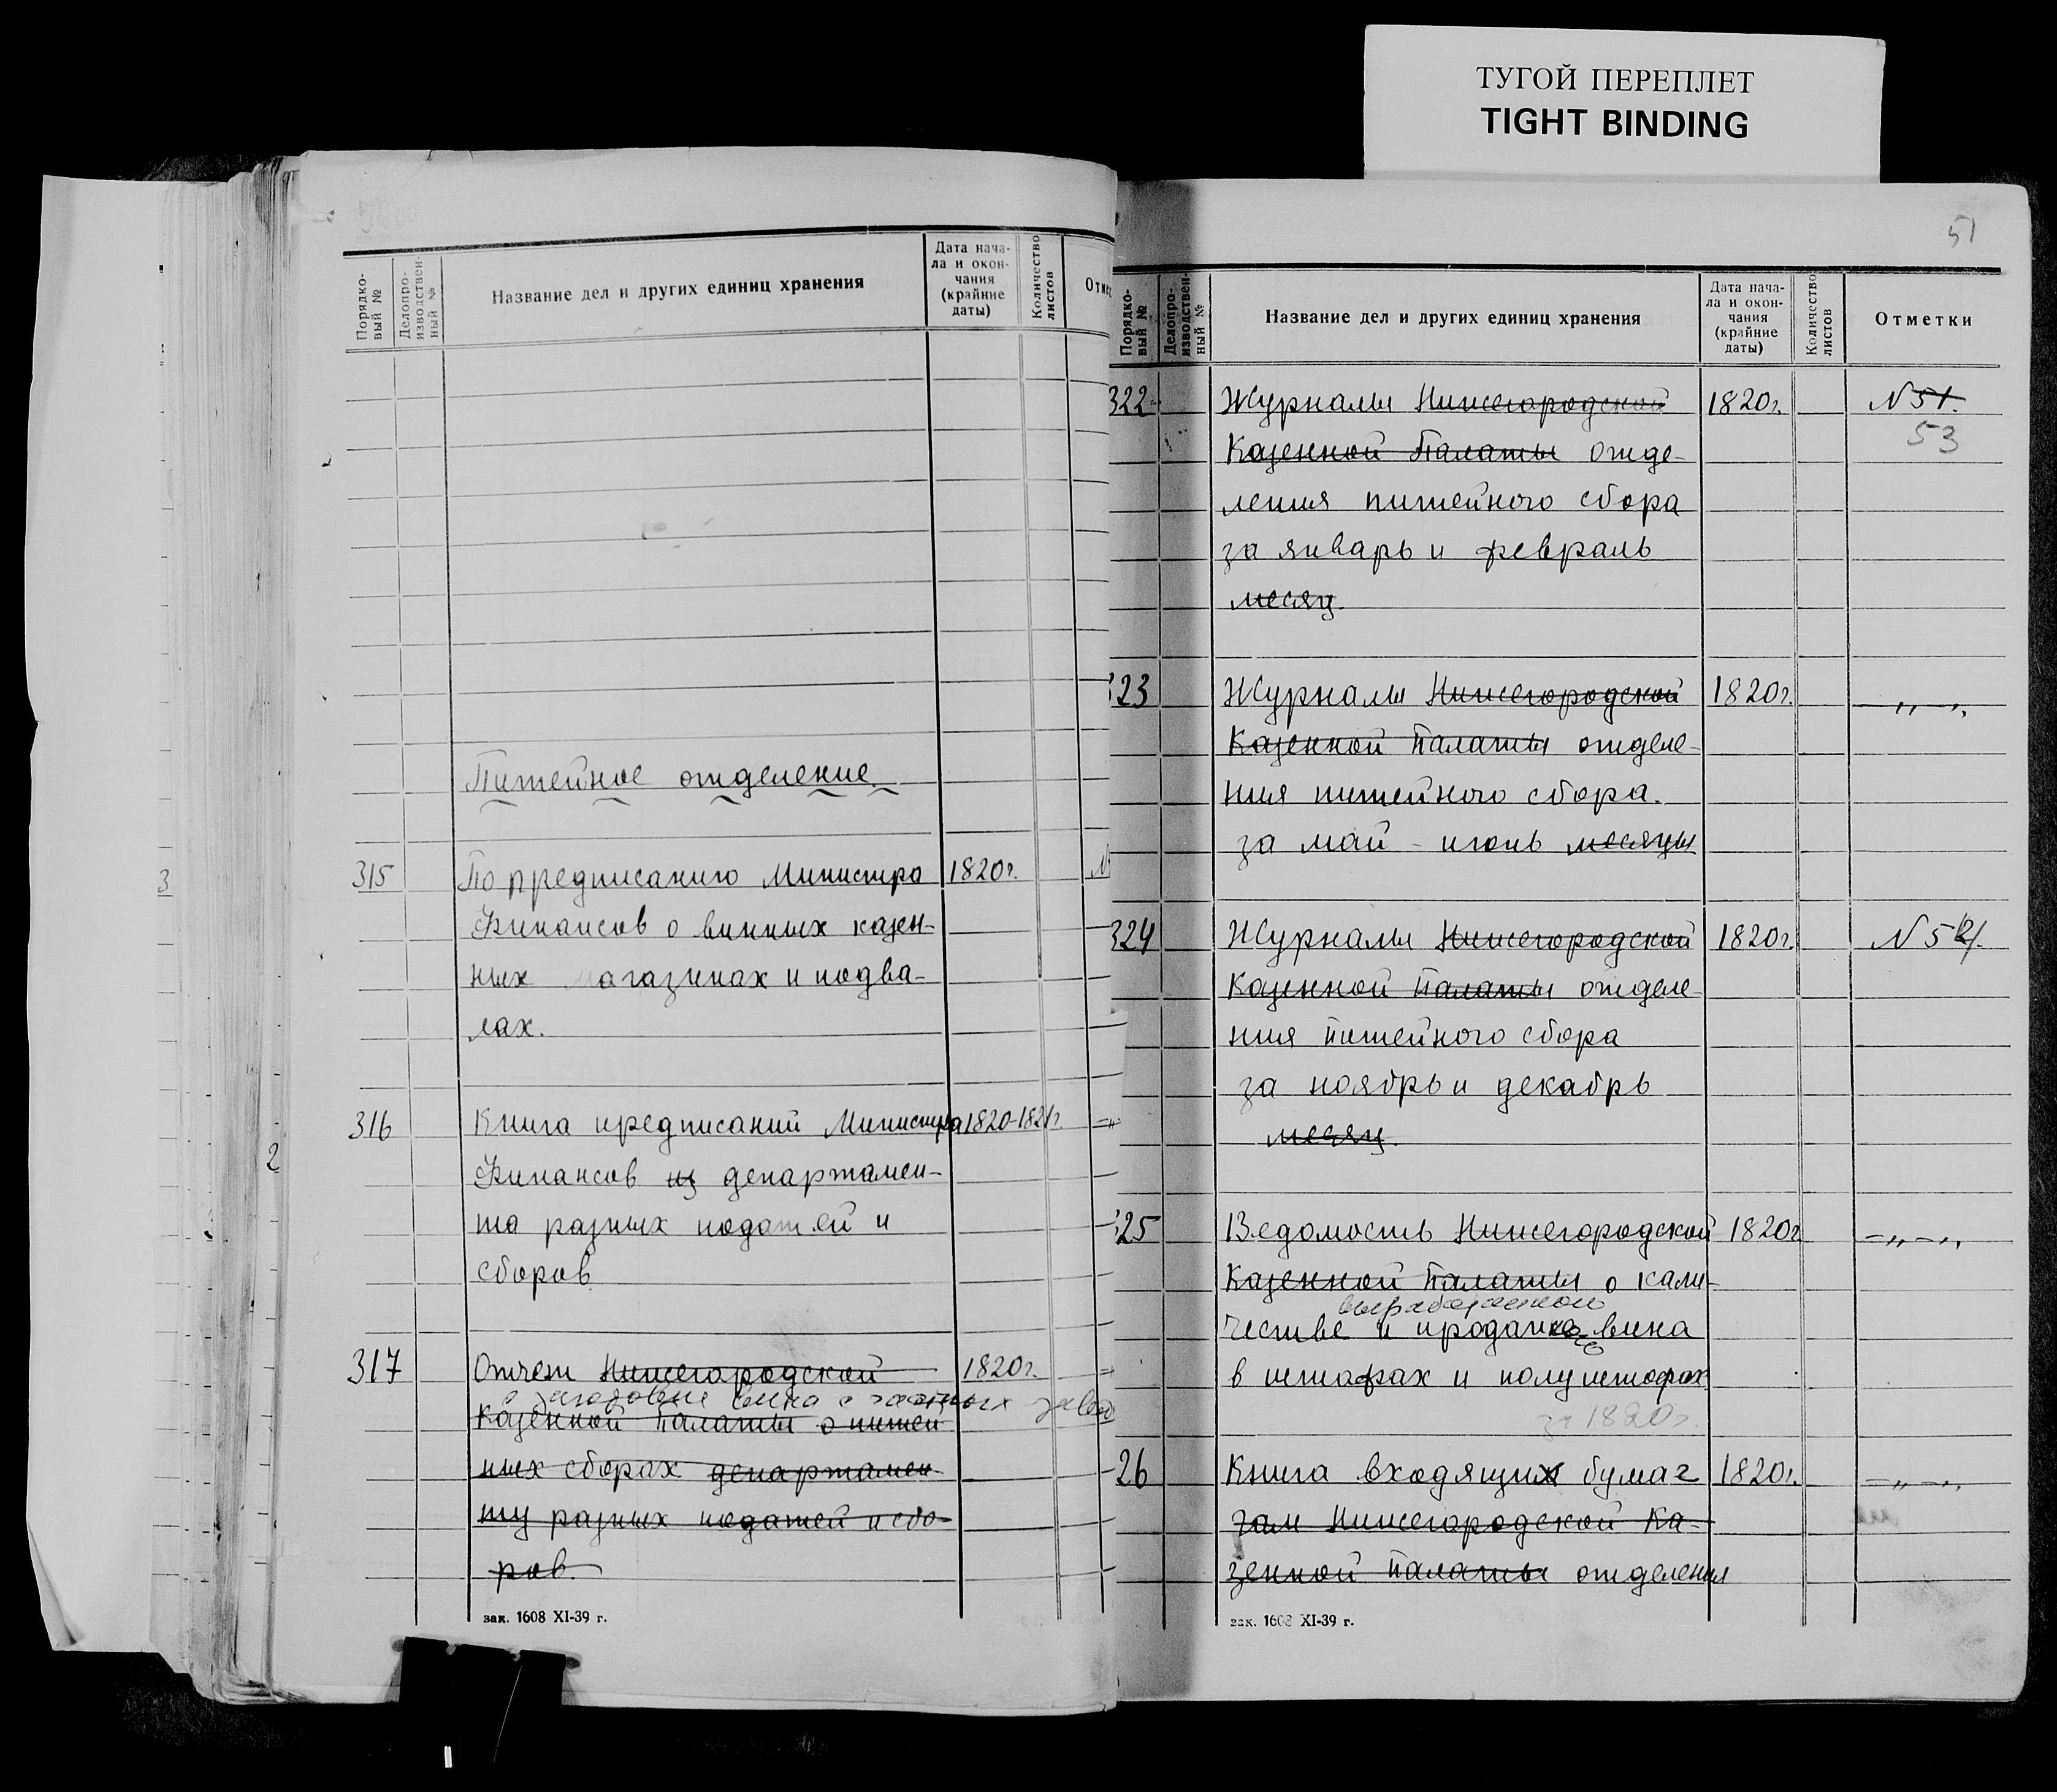 ТУГОЙ ПЕРЕПЛЕТ
TIGHT BINDING
Порядко-
вый №
Делопро-
изводствен-
ный №
Название дел и других единиц хранения
Дата нача-
ла и окон-
чания
(крайние
даты)
Количество
листов
Отмет
Питейное отделение
315 По предписанию Министра 1820г. №
Финансов о винных казен-
ных магазинах и подва-
лах.
316 Книга предписаний Министра 1820-1821г. -"
Финансов из департамен-
та разных податей и
сборов
317 Отчет Нижегородской 1820г.
о заготовке вина с частных завод
Казенной Палаты о питей
ных сборах департамен-
ту разных податей и сбо-
ров.
зак. 1608 XI-39 г.
3
2
51
Порядко-
вый №
Делопро-
изводствен-
ный №
Название дел и других единиц хранения
Дата нача-
ла и окон-
чания
(крайние
даты)
Количество
листов
Отметки
322 Журналы Нижегородской 1820г. № 51.
Казенной Палаты отде- 53
ления питейного сбора
за январь и февраль
месяц.
323 Журналы Нижегородской 1820г. -"-"
Казенной Палаты отделе-
ния питейного сбора.
за май - июнь месяцы
324 Журналы Нижегородской 1820г. № 52.
Казенной Палаты отделе-
ния питейного сбора
за ноябрь и декабрь
месяц.
325 Ведомость Нижегородской 1820г -"-"
Казенной Палаты о коли-
выработанного
честве и проданного вина
в штофах и полуштофах
за 1820г.
26 Книга входящих бумаг 1820г. -"-"
гам Нижегородской Ка-
зенной Палаты отделения
зак. 1608 XI-39 г.